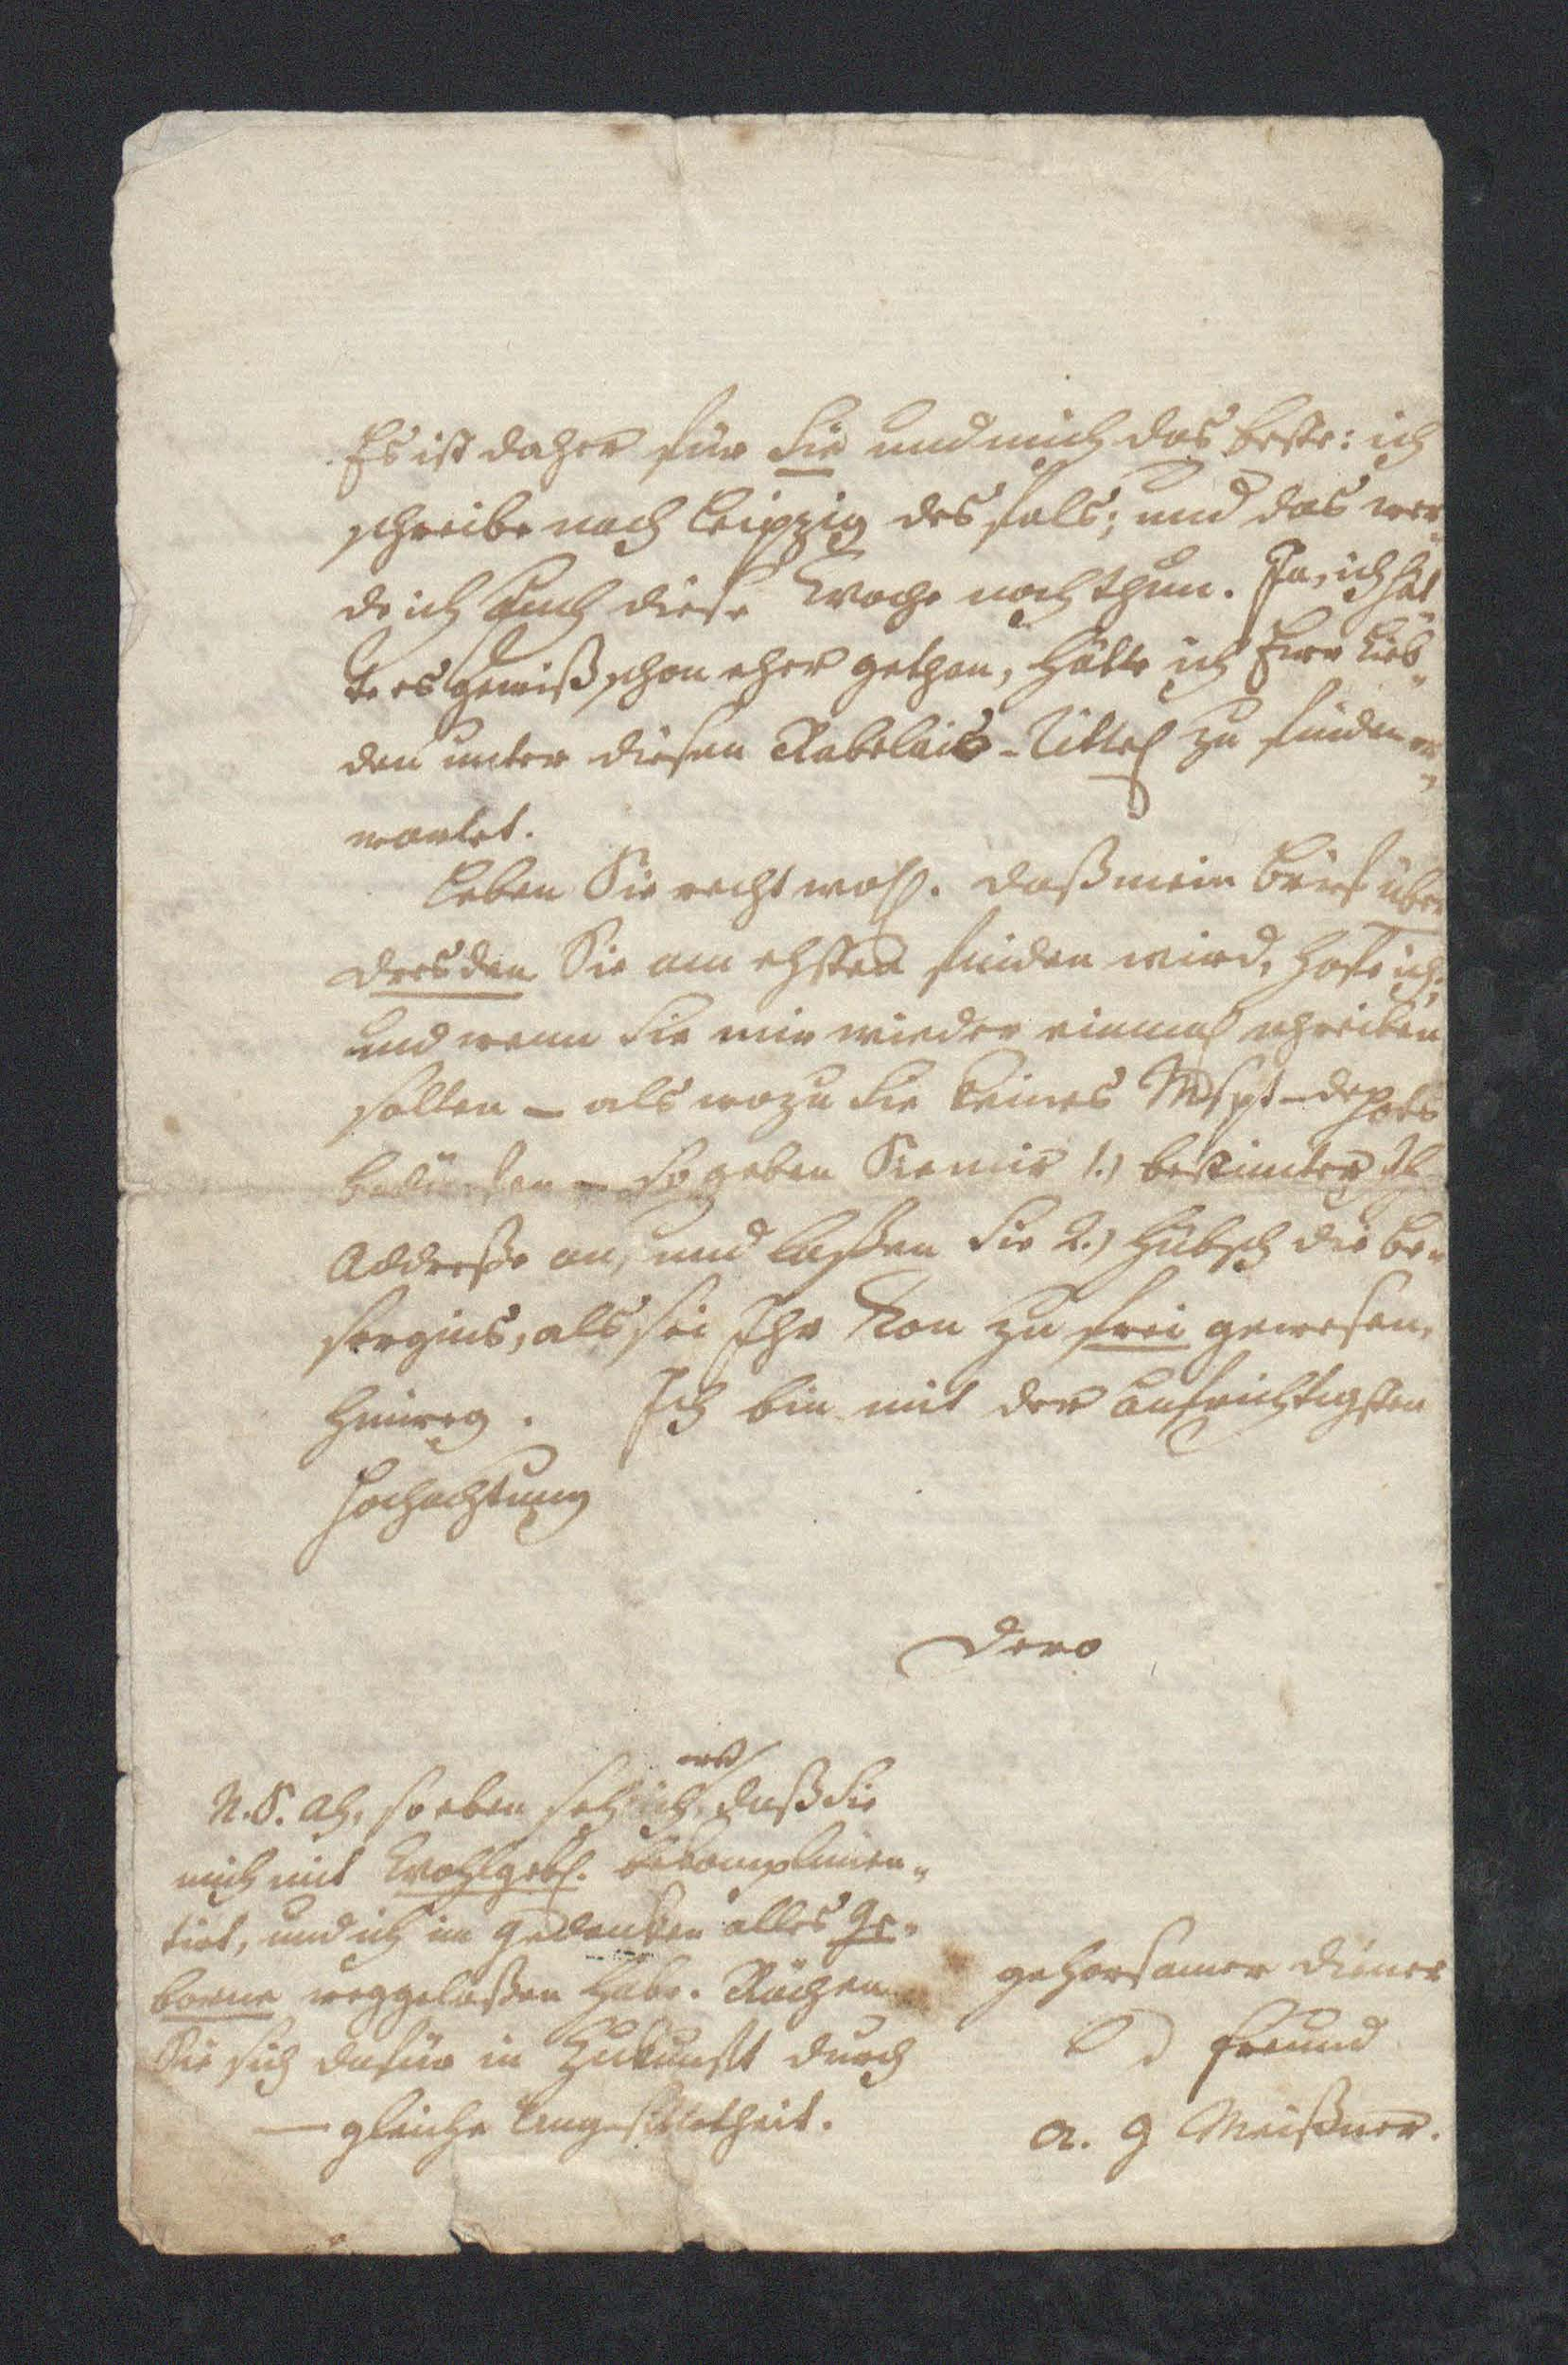 Es ist daher für Sie und mich das beste: ich
schreibe nach Leipzig des fals; und das wer¬
de ich auch diese Woche noch thun. Ja, ich hät¬
te es gewiß schon eher gethan, hätte ich Eure Lieb¬
den unter diesem Rabelais-Tittel zu finden er¬
wartet.
Leben Sie recht wohl. Daß mein Brief über
Dresden Sie am ehsten finden wird, hoffe ich;
und wenn Sie mir wieder einmal schreiben
sollen – als wozu Sie keines Mspt-depots
bedürfen – so geben Sie mir 1.) bestimter Ihre
Addresse an, und laßen Sie 2.) hübsch die Be¬
sorgnis, als sei Ihr Ton zu frei gewesen,
hinweg. Ich bin mit der aufrichtigsten
Hochachtung
Dero
gehorsamer Diener
und Freund
A. G Meißner.
N.S. Ah, so eben seh ich erst, daß Sie
mich mit Wohlgeb. bekomplimen¬
tirt, und ich in Gedanken alles Ge¬
borne weggelaßen habe. Rächen
Sie sich dafür in Zukunft durch
– gleiche Ungesittetheit.